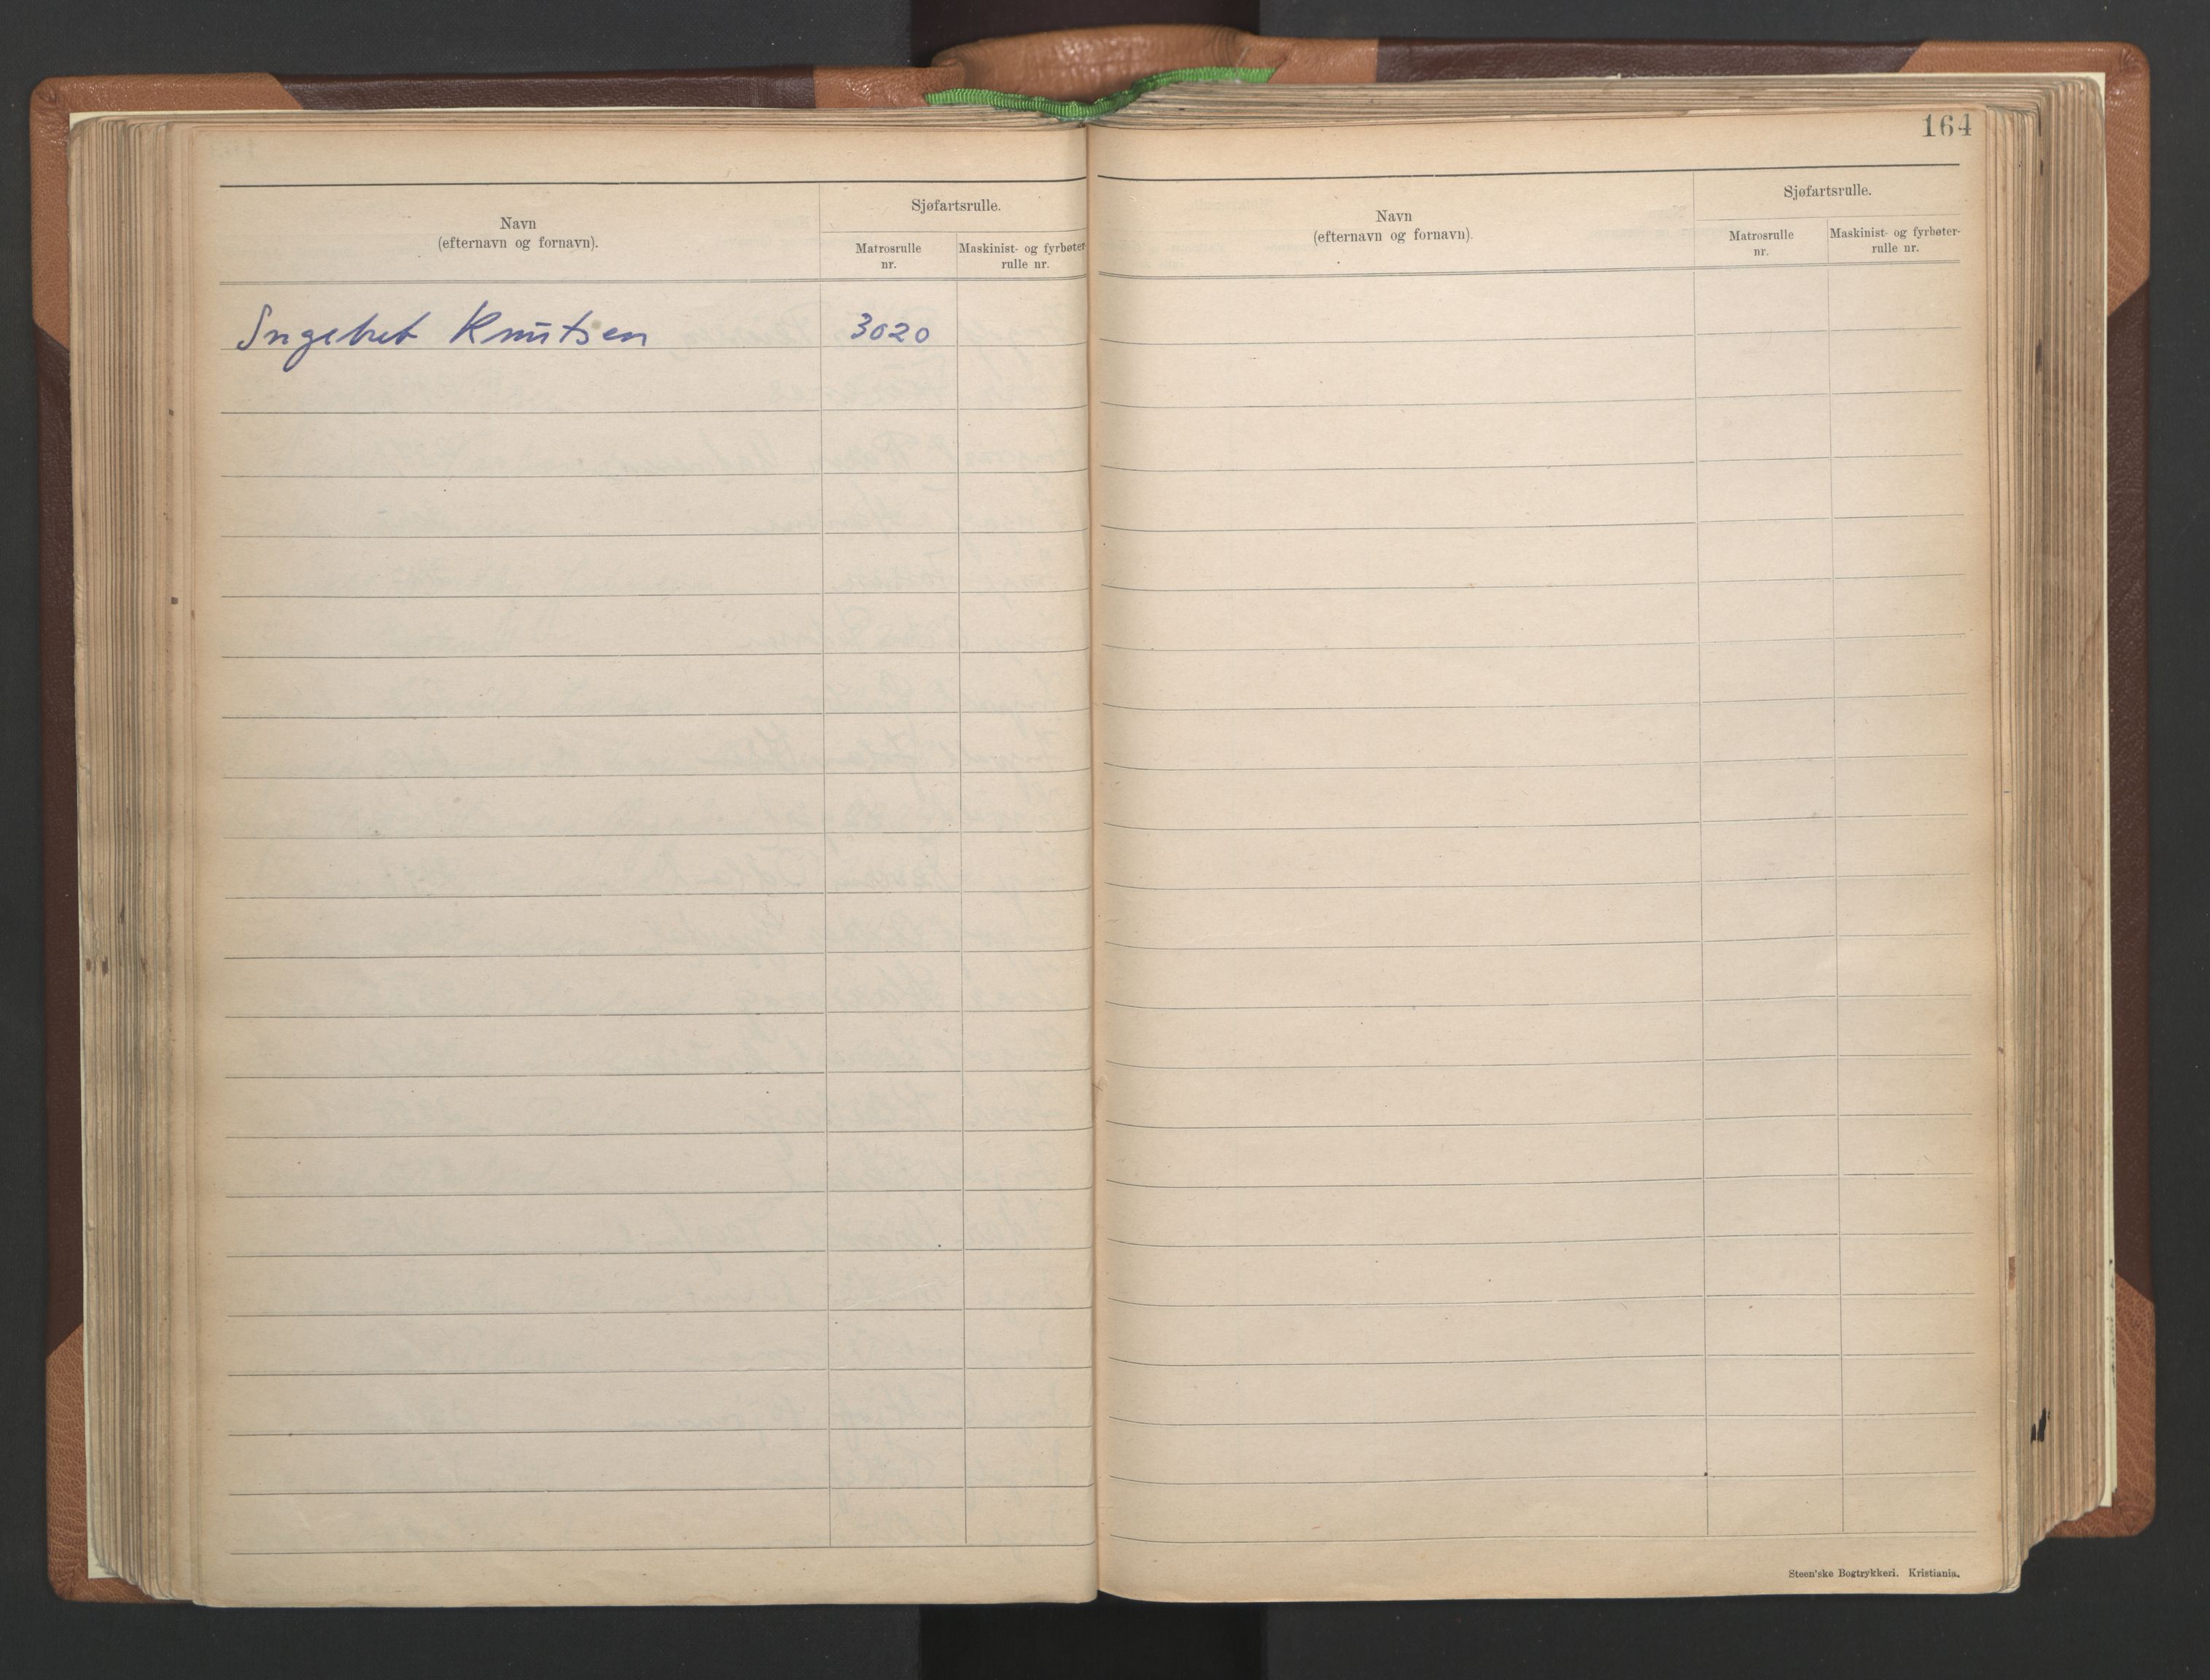 Navn
(efternavn og fornavn).
Sjøfartsrulle.
Matrosrulle
nr.
Maskinist- og fyrbøter
rulle nr.
Ingebret Knutsen 3020
164
Navn
(efternavn og fornavn).
Sjøfartsrulle.
Matrosrulle
nr.
Maskinist- og fyrbøter-
rulle nr.
Steen'ske Bogtrykkeri. Kristiania.